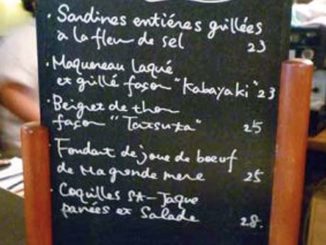 · Sardines entiéres grillées
à la fleur de sel 23
· Maquereau laqué
et grillé façon "Kabayaki" 23
· Beignet de thon
façon "Tatsuta" 25
· Fondant de joue de boeuf
de Ma grande mere 25
· Coquilles St-Jaque
panées et Salade 28.